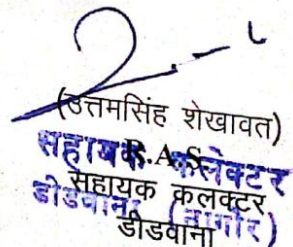 (उत्तमसिंह शेखावत)
R.A.S.
सहायक कलेक्टर
सहायक कलक्टर
डीडवाना (नागौर)
डीडवाना